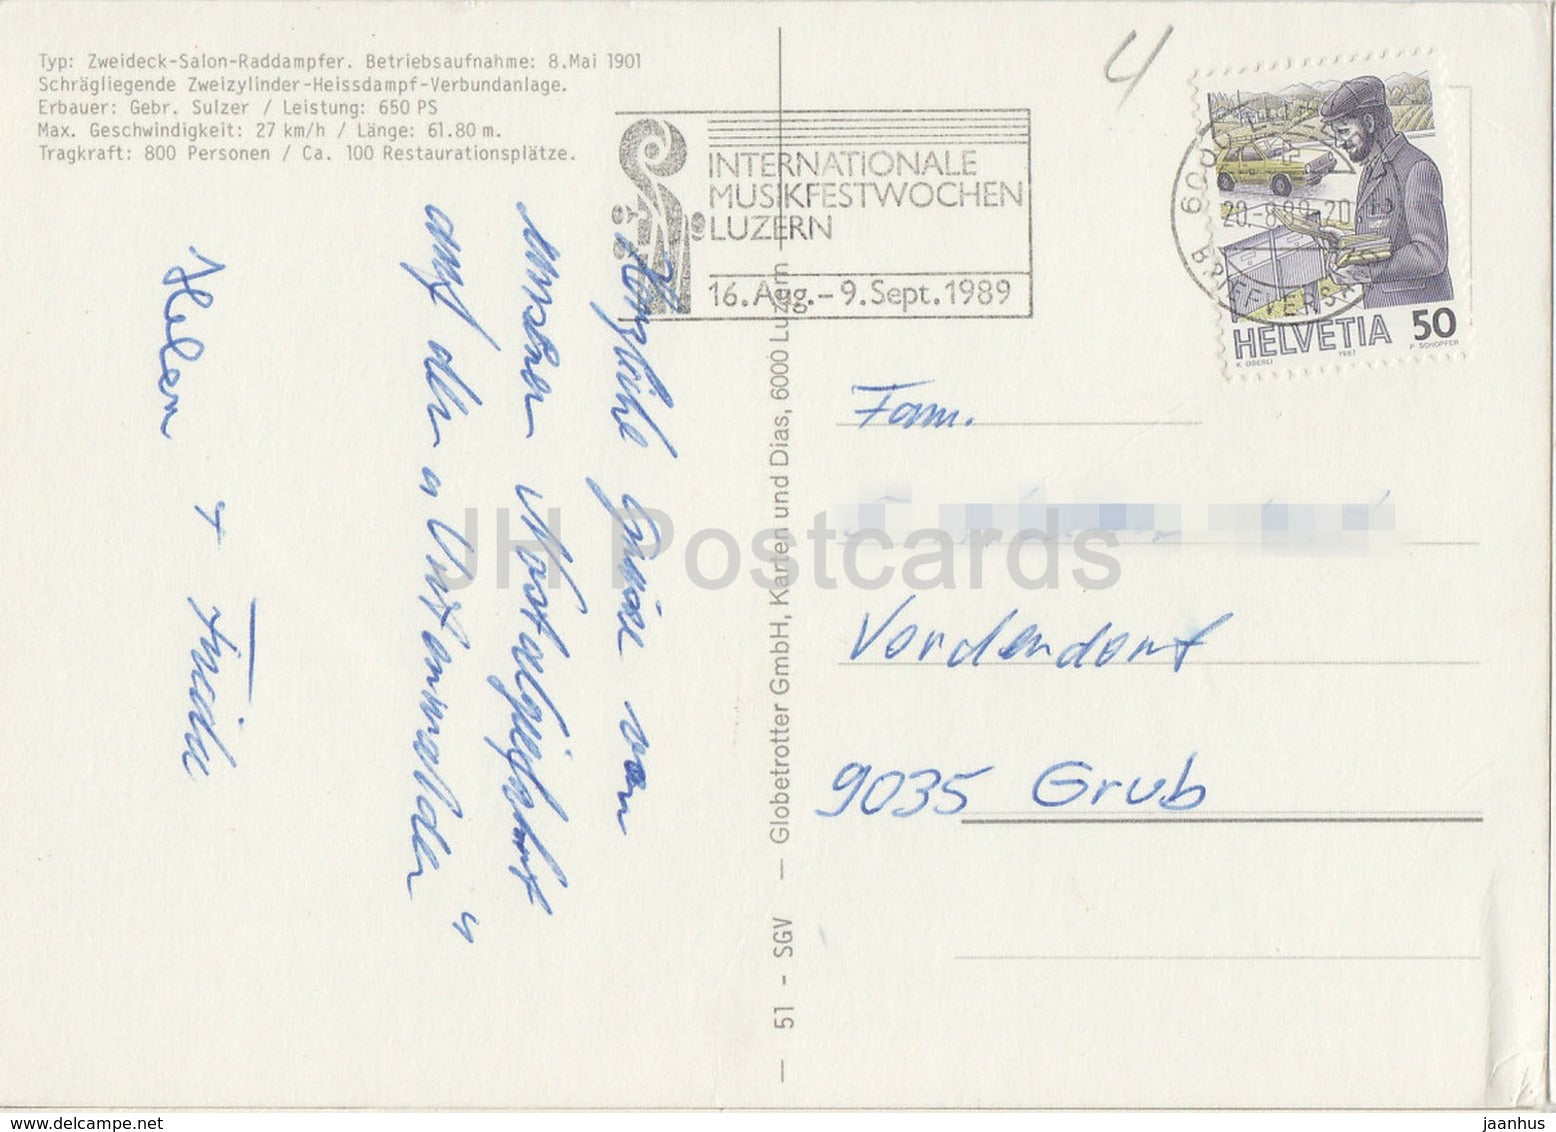 Typ: Zweideck-Salon-Raddampfer. Betriebsaufnahme: 8.Mai 1901
Schrägliegende Zweizylinder-Heissdampf-Verbundanlage.
Erbauer: Gebr. Sulzer / Leistung: 650 PS
Max. Geschwindigkeit: 27 km/h / Länge: 61.80 m.
Tragkraft: 800 Personen / Ca. 100 Restaurationsplätze.
4
INTERNATIONALE
MUSIKFESTWOCHEN
LUZERN
16. Aug. – 9. Sept. 1989
BRIEFVERSA
HELVETIA 50
K. OBERLI 1987 P. SCHOPFER
Herzliche Grüsse von
unserer Nostalgiefahrt
auf der "Unterwalden"
Helen + Friedu
— 51 - SGV — Globetrotter GmbH, Karten und Dias, 6000 Luzern
Fam.
Vorderdorf
9035 Grub
JH Postcards
www.delcampe.net
jaanhus